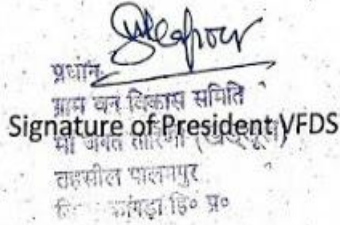 प्रधान
ग्राम वन विकास समिति
Signature of President VFDS
माँ जगत तारिणी
तहसील पालमपुर
कांगड़ा हि० प्र०